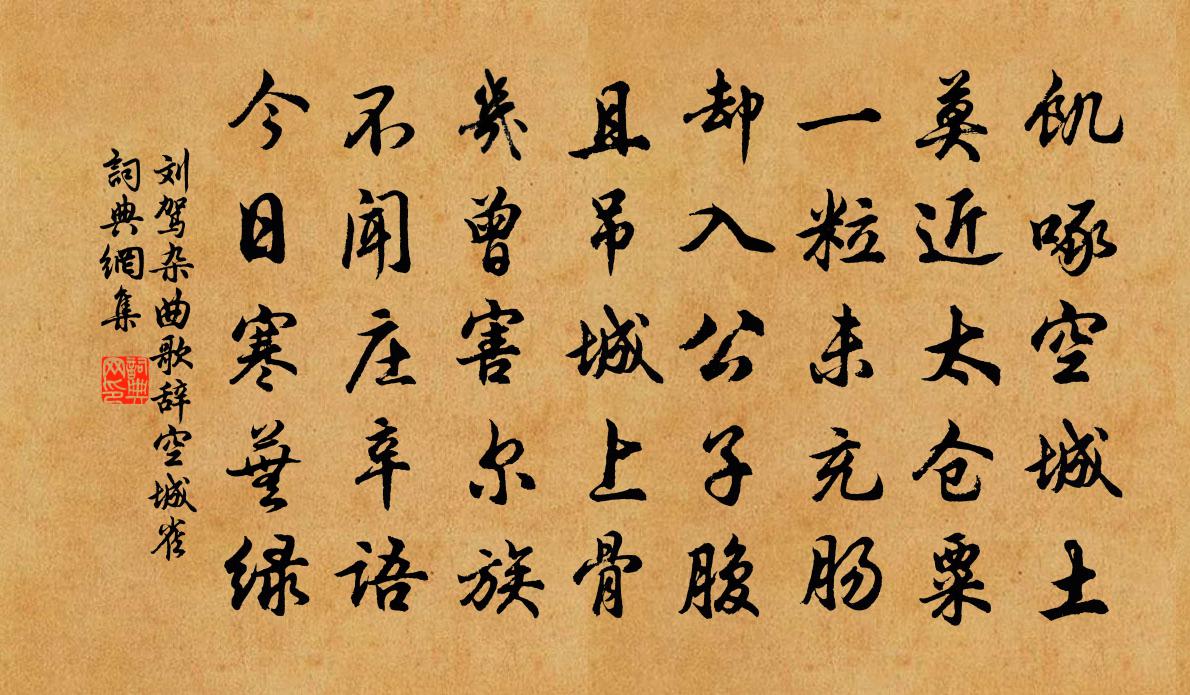 饥啄空城土
莫近太仓粟
一粒未充肠
却入公子腹
且吊城上骨
几曾害尔族
不闻庄辛语
今日寒芜绿
刘驾杂曲歌辞空城雀
詞典網集
詞典网印